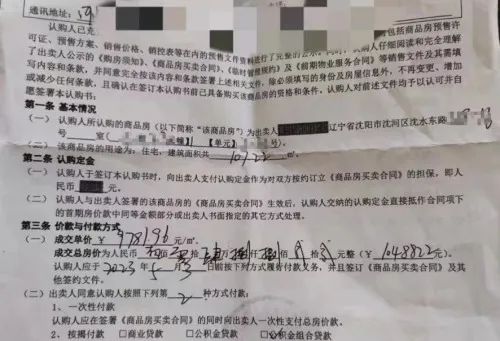 通讯地址:
认购人已充
包括商品房预售许
可证、预售方案、销售价格、销控表等在内的预售文件资料进行了完整的公示。同时,认购人仔细阅读和完全理解
了出卖人公示的《购房须知》、《商品房买卖合同》、《临时管理规约》及《前期物业服务合同》等销售文件及其需填
写内容和条款,并同意完全按该内容和条款签署上述相关文件,除必须填写的身份及房屋信息外,不再变更、增加
或减少任何条款,且确认在签订本认购书前已具备购买该商品房的资格和条件。认购人对前述文件均予以认可并自
愿签署本认购书:
第一条 基本情况
(一) 认购人所认购的商品房(以下简称“该商品房”)为出卖人 辽宁省沈阳市沈河区沈水东路
号 室( 【单元】 号)。
(二) 该商品房的用途为:住宅,建筑面积共 107.22 m²。
第二条 认购定金
(一) 认购人于签订本认购书时,向出卖人支付认购定金作为对双方按约订立《商品房买卖合同》的担保,即人
民币 元。
(二) 认购人与出卖人签署的该商品房的《商品房买卖合同》生效后,认购人交纳的认购定金直接抵作合同项下
的首期房价款中同等金额部分或出卖人书面指定的其它方式处理。
第三条 价款与付款方式
(一) 成交单价 ¥ 9781.96 元/m²。
成交总房价为人民币 元整(¥ 1048822 元)。
认购人应于 2023 年 日前按下列方式履行付款义务,并且签订《商品房买卖合同》及其
他签约文件。
(二) 出卖人同意认购人按照下列第 2 种方式付款:
1、 一次性付款
认购人应在签署《商品房买卖合同》的同时向出卖人一次性支付总房价款。
2、 按揭付款 □商业贷款 □公积金贷款 □公积金组合贷款